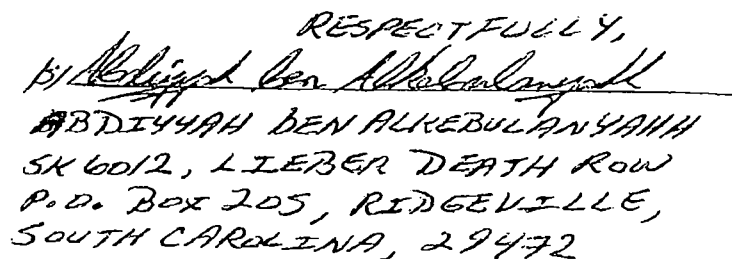 RESPECTFULLY,
by Abdiyyah ben Alkebulanyahh
ABDIYYAH bEN ALKEBULANYAHH
SK 6012, LIEBER DEATH ROW
P.O. BOX 205, RIDGEVILLE,
SOUTH CAROLINA, 29472